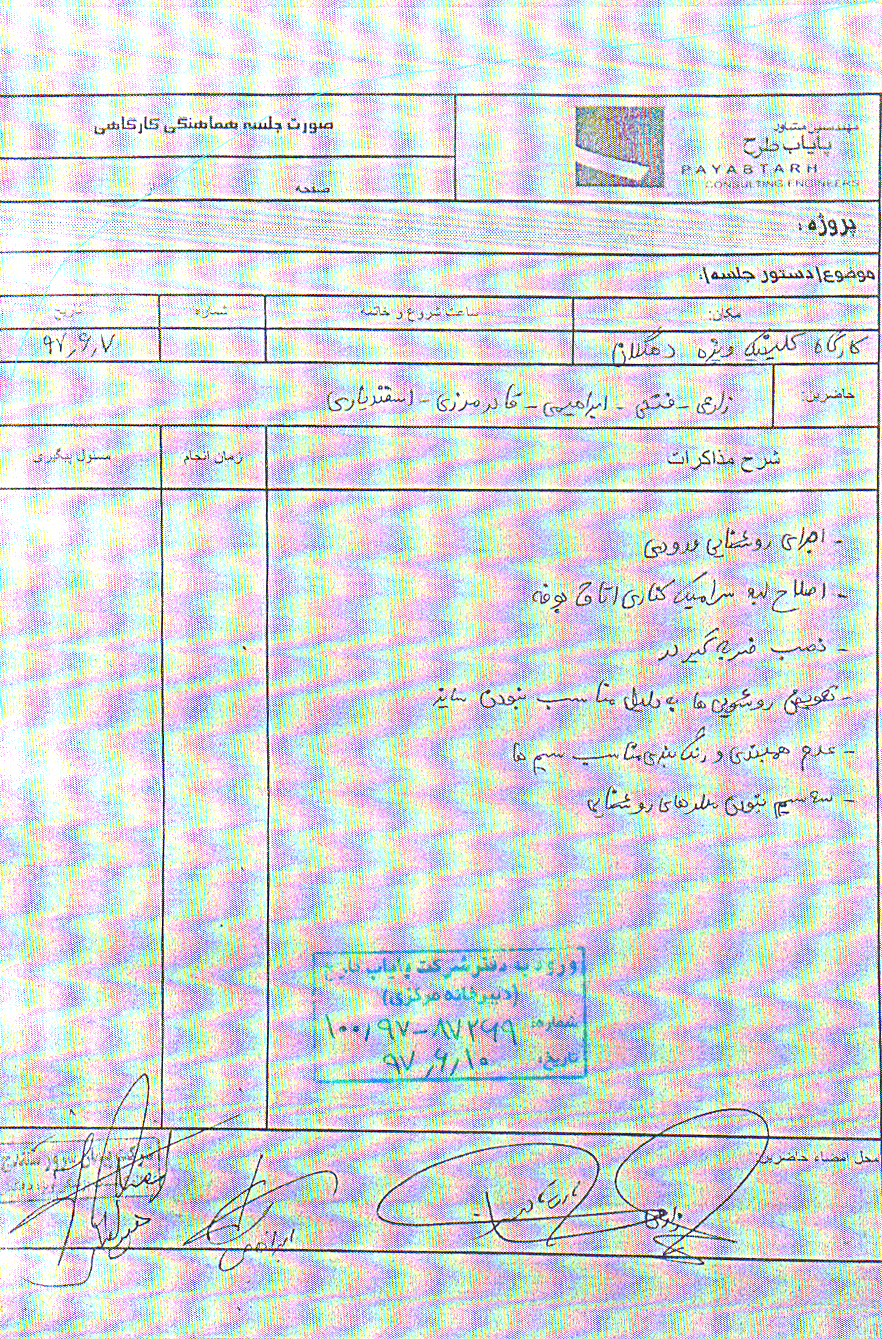 مهندسین مشاور
پایاب طرح
PAYABTARH
CONSULTING ENGINEERS
صورت جلسه هماهنگی کارگاهی
صفحه
پروژه :
موضوع(دستور جلسه):
مکان: ساعت شروع و خاتمه شماره تاریخ
کارگاه کلینیک ویژه دهگلان ۹۷٫۶٫۷
حاضرین: زارعی - فتحی - ابراهیمی - قادرمرزی - اسفندیاری
شرح مذاکرات زمان انجام مسئول پیگیری
- اجرای روشنایی ورودی
- اصلاح لبه سرامیک کناری اتاق بوفه
- نصب ضربه گیر در
- تعویض روشویی ها به دلیل مناسب نبودن سایز
- عدم همبندی و رنگ بندی مناسب سیم ها
- سه سیم نبودن مدارهای روشنایی
ورود به دفتر شرکت پایاب طرح
(دبیرخانه مرکزی)
شماره: ۱۰۰٫۹۷-۸۷۲۶۹
تاریخ: ۹۷٫۶٫۱۰
محل امضاء حاضرین:
زارعی
ابراهیمی